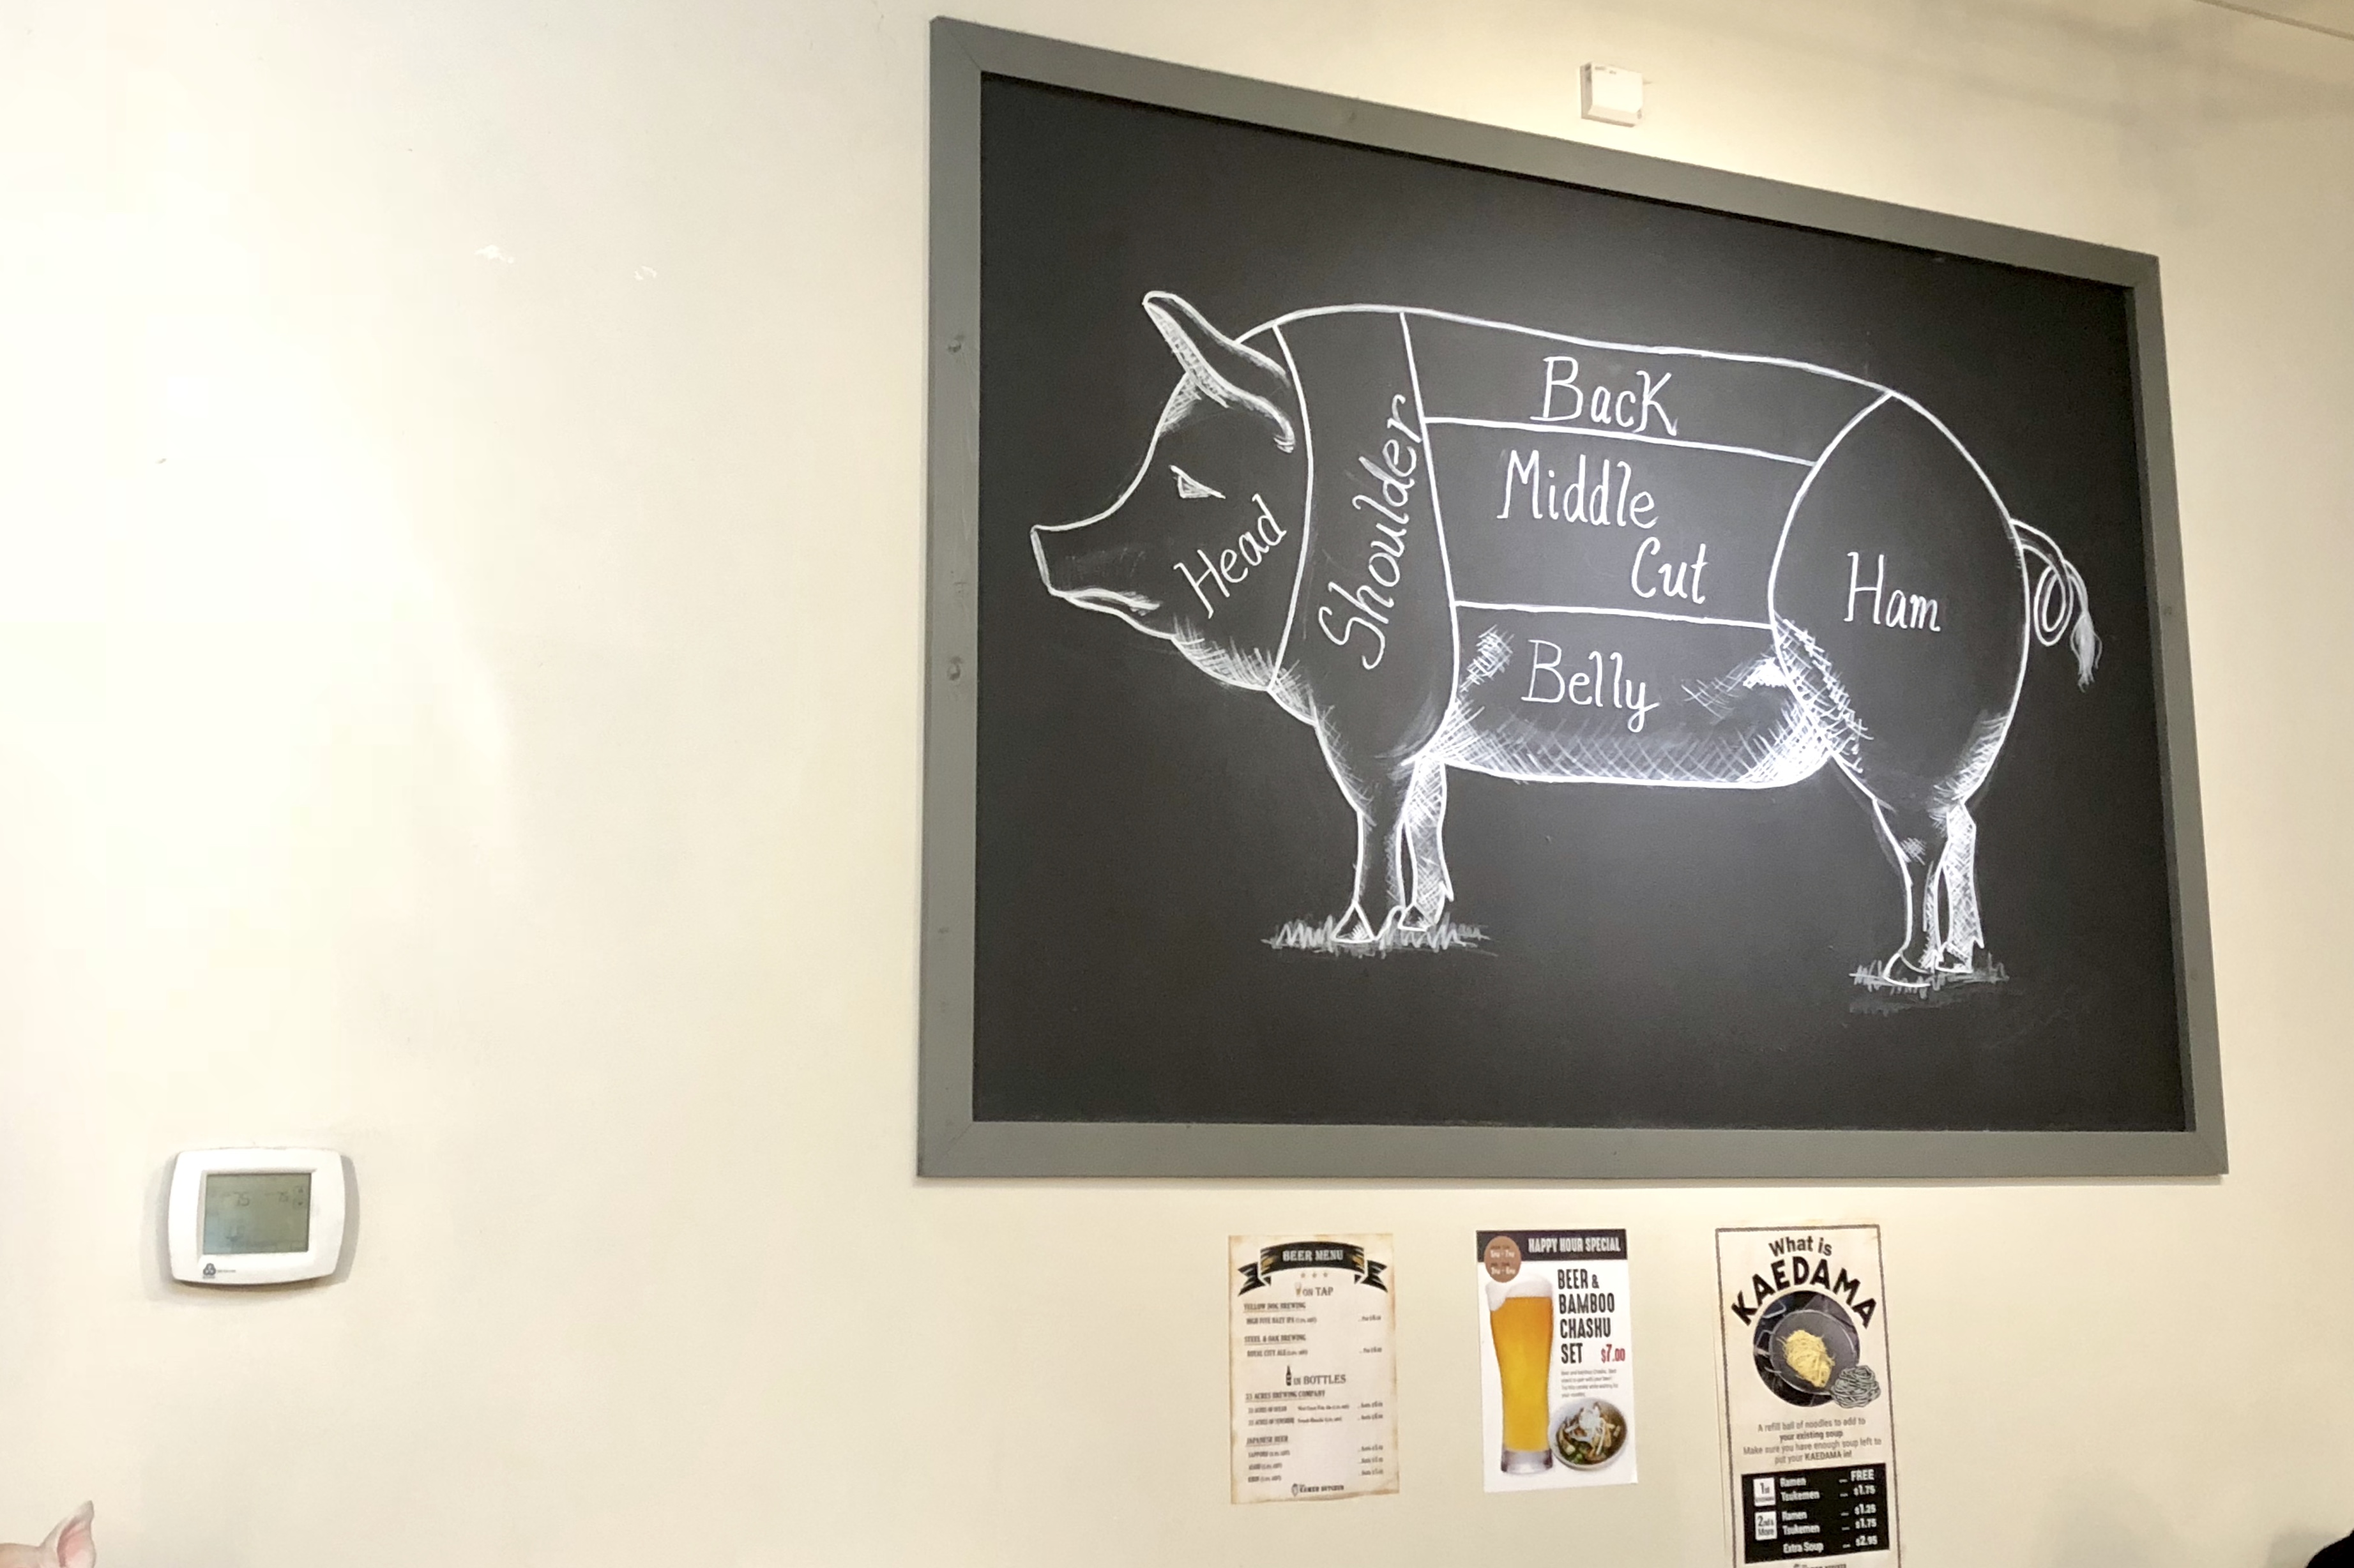 Back
Middle
Cut
Shoulder
Head
Ham
Belly
75
BEER MENU
ON TAP
YELLOW DOG BREWING
HIGH FIVE HAZY IPA
STEEL & OAK BREWING
ROYAL CITY ALE
IN BOTTLES
33 ACRES BREWING COMPANY
33 ACRES OF OCEAN
33 ACRES OF SUNSHINE
JAPANESE BEER
SAPPORO
ASAHI
KIRIN
RAMEN BUTCHER
HAPPY HOUR SPECIAL
BEER &
BAMBOO
CHASHU
SET $7.00
What is
KAEDAMA
A refill ball of noodles to add to
your existing soup
Make sure you have enough soup left to
put your KAEDAMA in!
1st
Ramen ... FREE
Tsukemen ... $1.75
2nd &
More
Ramen ... $1.25
Tsukemen ... $1.75
Extra Soup ... $2.95